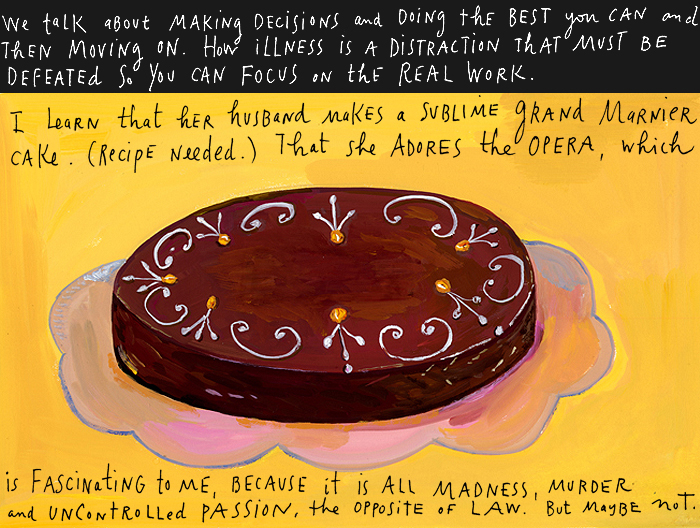 We talk about MAKING DECISIONS and DOING the BEST you CAN and
THEN MOVING ON. How iLLNESS is A DISTRACTION THAT MUST BE
DEFEATED So You CAN FOCUS on the REAL WORK.
I LEARN that hER husBAND MAKES a SUBLIME gRAND MARNIER
CAKe. (RecipE Needed.) That she ADORES the OPERA, which
is FASCiNATiNG to ME, BECAUSE it is ALL MADNESS, MURDER
and UNCoNTROLLed PASSION, the OPPOSITE OF LAW. But MAYBE not.